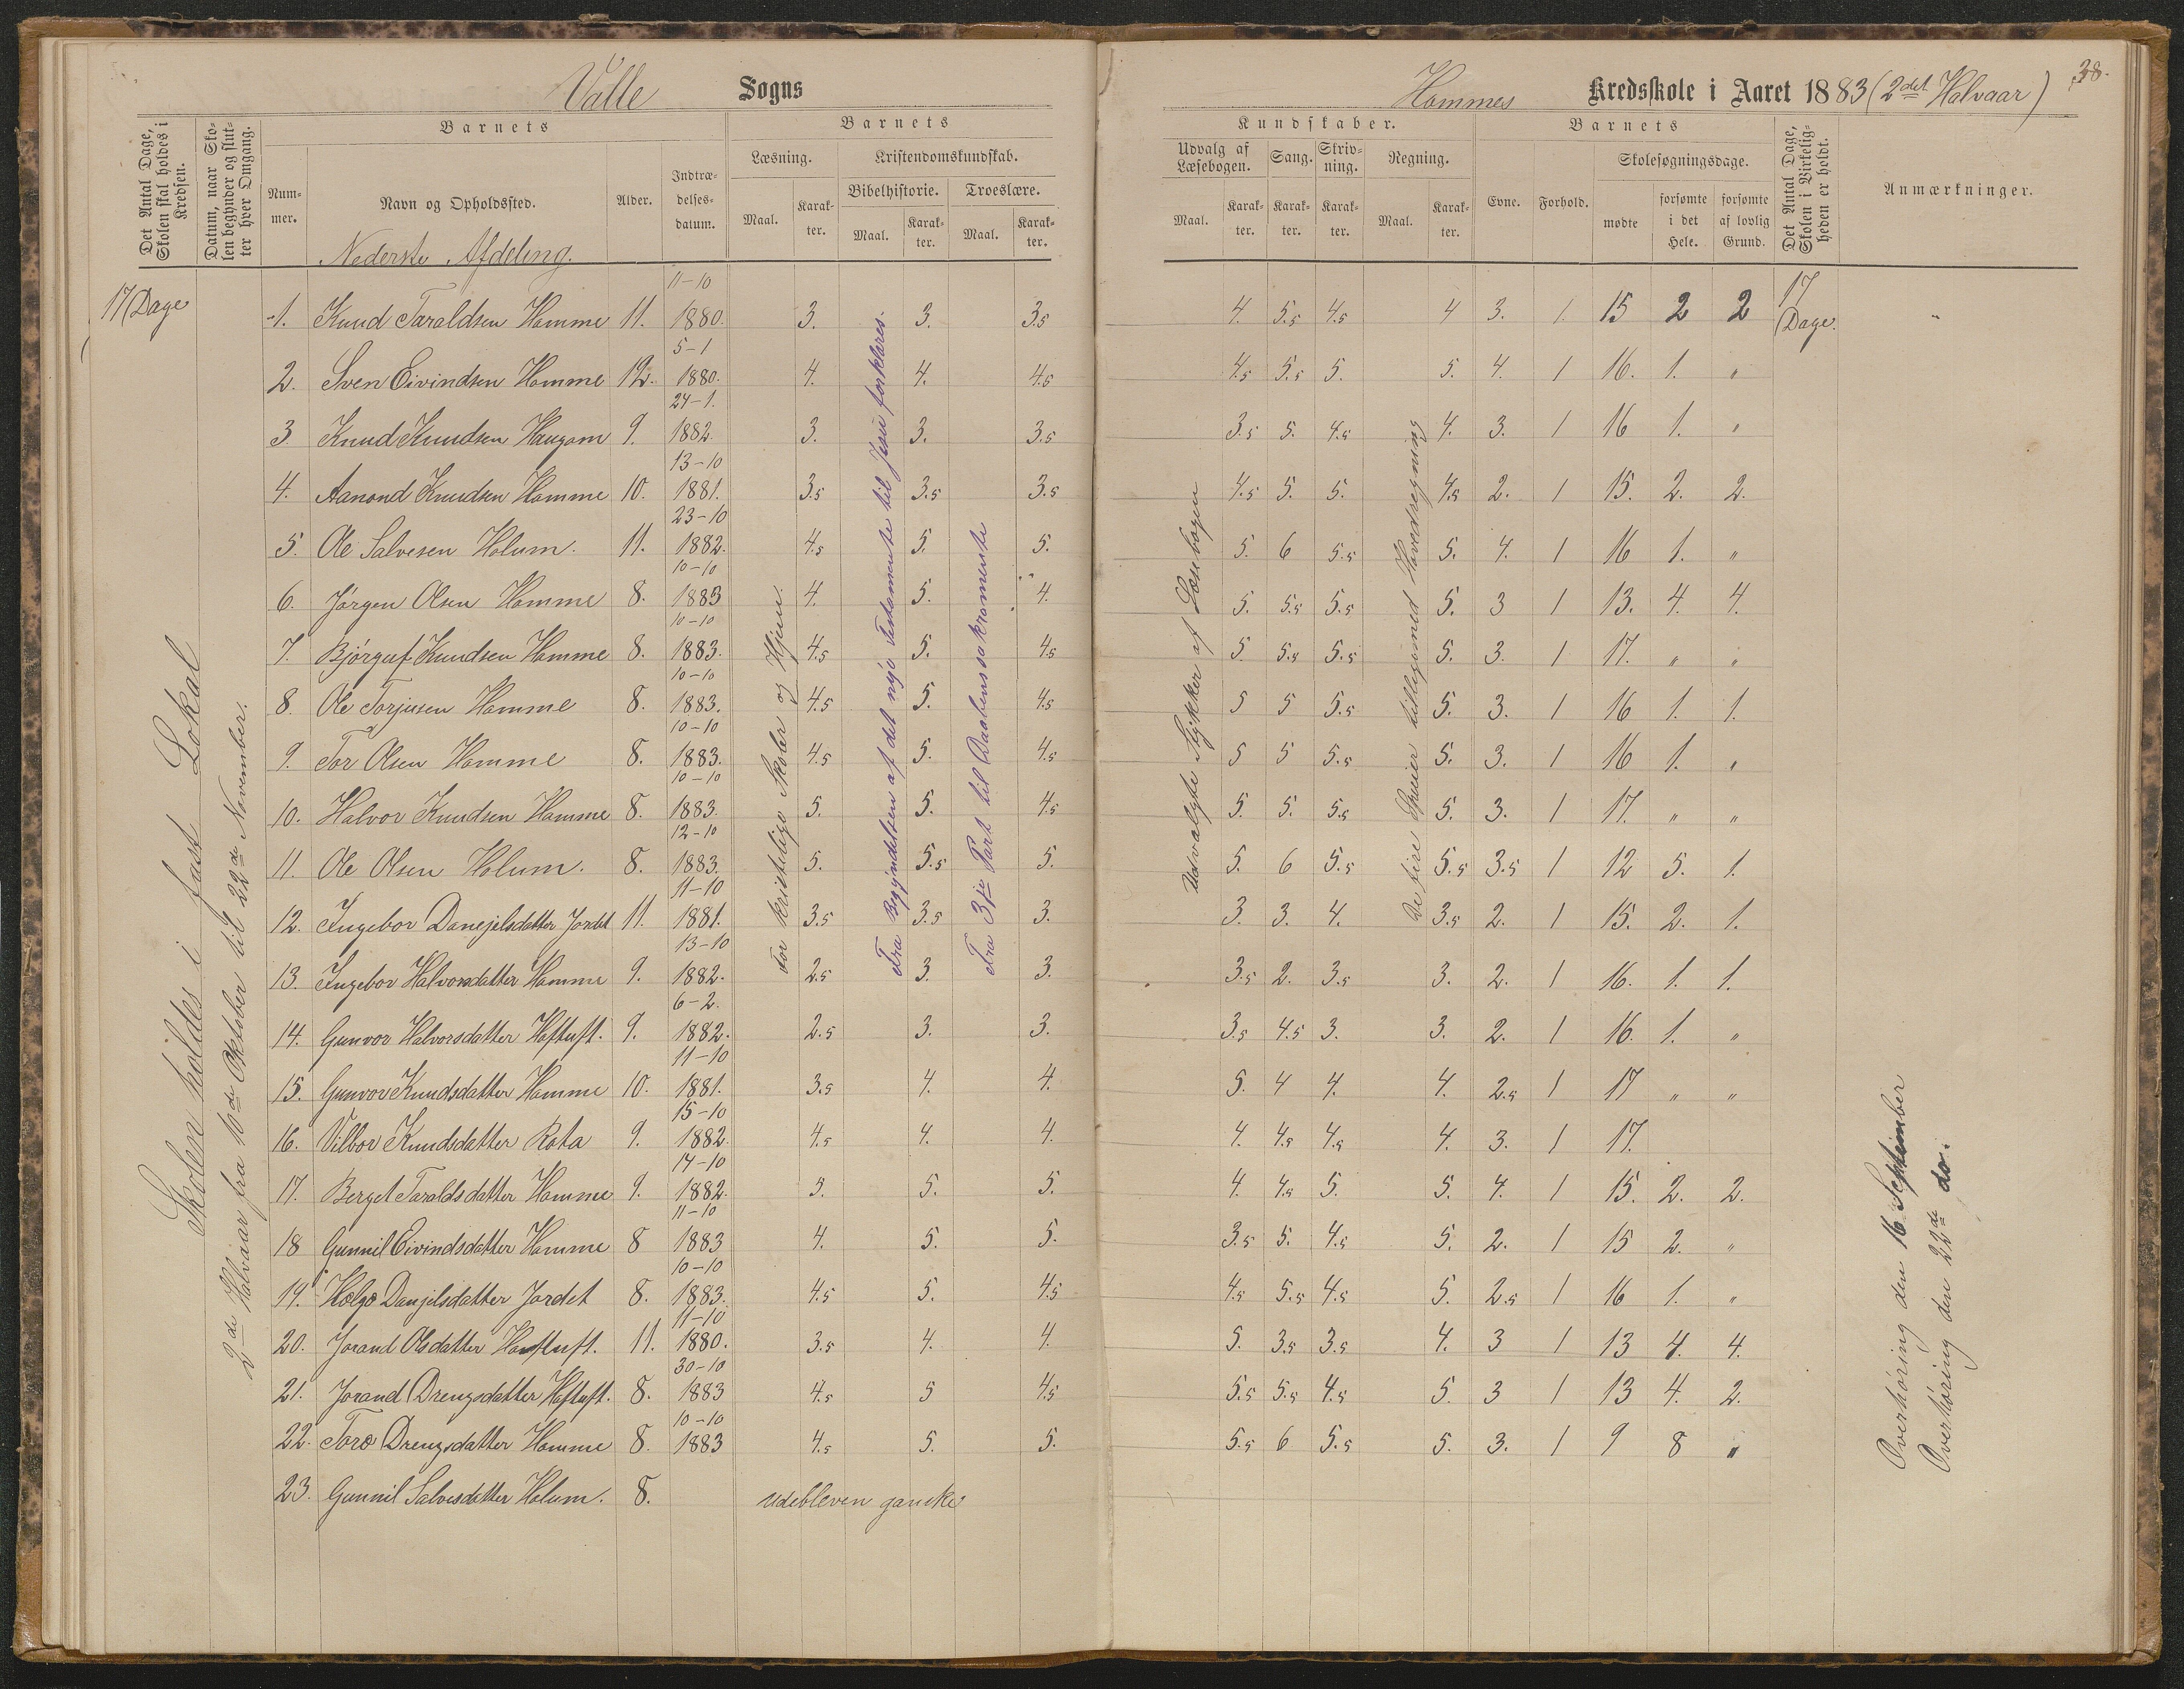 Valle Sogns
Hommes Kredsskole i Aaret 1883 (2det Halvaar)
38.
Det Antal Dage, Skolen skal holdes i Kredsen.
Datum, naar Skolen begynder og slutter hver Omgang.
Barnets
Nummer.
Navn og Opholdssted.
Alder.
Indtrædelsesdatum.
Barnets
Læsning.
Maal.
Karakter.
Kristendomskundskab.
Bibelhistorie.
Maal.
Karakter.
Troeslære.
Maal.
Karakter.
Kundskaber.
Udvalg af Læsebogen.
Maal.
Karakter.
Sang.
Karakter.
Skrivning.
Karakter.
Regning.
Maal.
Karakter.
Barnets
Evne.
Forhold.
Skolesøgningsdage.
mødte
forsømte i det Hele.
forsømte af lovlig Grund.
Det Antal Dage, Skolen i Virkeligheden er holdt.
Anmærkninger.
Nederste Afdeling.
17 Dage
1. Knud Taraldsen Homme 11. 11-10 1880. 3. 3. 3.5 4. 5.5 4.5 4 3. 1. 15 2 2 17 Dage. "
2. Sven Eivindsen Homme 12. 5-1 1880. 4. 4. 4.5 4.5 5.5 5. 5. 4. 1 16. 1. "
3 Knud Knudsen Haugom 9. 24-1. 1882. 3. 3. 3.5 3.5 5. 4.5 4. 3. 1 16 1. "
4. Aanond Knudsen Homme 10. 13-10 1881. 3.5 3.5 3.5 4.5 5. 5. 4.5 2. 1 15. 2. 2.
5. Ole Salvesen Holum. 11. 23-10 1882. 4.5 5. 5. 5. 6 5.5 5. 4. 1 16 1. "
6. Jørgen Olsen Homme 8. 10-10 1883 4. 5. 4. 5. 5.5 5.5 5. 3 1 13. 4. 4.
7. Bjørguf Knudsen Homme 8. 10-10 1883. 4.5 5. 4.5 5 5.5 5.5 5. 3. 1 17. " "
8. Ole Torjusen Homme 8. 10-10 1883. 4.5 5. 4.5 5 5 5.5 5. 3. 1 16 1. 1.
9. Tor Olsen Homme 8. 10-10 1883. 4.5 5. 4.5 5 5 5.5 5. 3. 1 16 1. "
10. Halvor Knudsen Homme 8. 10-10 1883. 5. 5. 4.5 5. 5. 5.5 5. 3. 1 17. " "
11. Ole Olsen Holum. 8. 12-10 1883. 5. 5.5 5. 5. 6 5.5 5.5 3.5 1 12 5. 1.
12. Ingebor Danejelsdatter Jordet 11. 11-10 1881. 3.5 3.5 3. 3. 3. 4. 3.5 2. 1 15. 2. 1.
13. Ingebor Halvorsdatter Homme 9. 13-10 1882. 2.5 3. 3. 3.5 2. 3.5 3. 2. 1 16. 1. 1.
14. Gunvor Halvorsdatter Hoftuft. 9. 6-2. 1882. 2.5 3. 3. 3.5 4.5 3. 3. 2. 1 16. 1. "
15. Gunvor Knudsdatter Homme 10. 11-10 1881. 3.5 4. 4. 5. 4 4. 4. 2.5 1 17 " "
16. Vilbor Knudsdatter Rota 9. 15-10 1882. 4.5 4. 4. 4. 4.5 4.5 4. 3. 1 17.
17. Berget Taraldsdatter Homme 9. 14-10 1882. 5. 5. 5. 4. 4.5 5. 5. 4. 1 15. 2. 2.
18 Gunnil Eivindsdatter Homme 8 11-10 1883 4. 5. 5. 3.5 5. 4.5 5. 2. 1 15 2. "
19. Helge Danjelsdatter Jordet 8. 10-10 1883. 4.5 5. 4.5 4.5 5.5 4.5 5. 2.5 1 16 1. "
20. Jorand Olsdatter Hoftuft. 11. 11-10 1880. 3.5 4. 4. 5. 3.5 3.5 4. 3 1 13 4. 4.
21. Jorand Drengsdatter Hoftuft. 8. 30-10 1883 4.5 5 4.5 5.5 5.5 4.5 5. 3 1 13 4. 2.
22. Toro Drengsdatter Homme 8. 10-10 1883 4.5 5. 5. 5.5 6 5.5 5. 3. 1 9 8 "
23. Gunnil Salvesdatter Holum. 8. udebleven ganske
Skolen holdes i fast Lokal
2de Halvaar fra 10de Oktober til 22de November.
For kristelige Skoler og Hjem.
Fra Begyndelsen af det nye Testamente til Jesu forklares.
Fra 3je Part til Daabens sakramente
Udvalgte Stykker af Læsebogen
De fire Speier tilligemed Hovedregning
Overhøring den 16 September
Overhøring den 22de do: